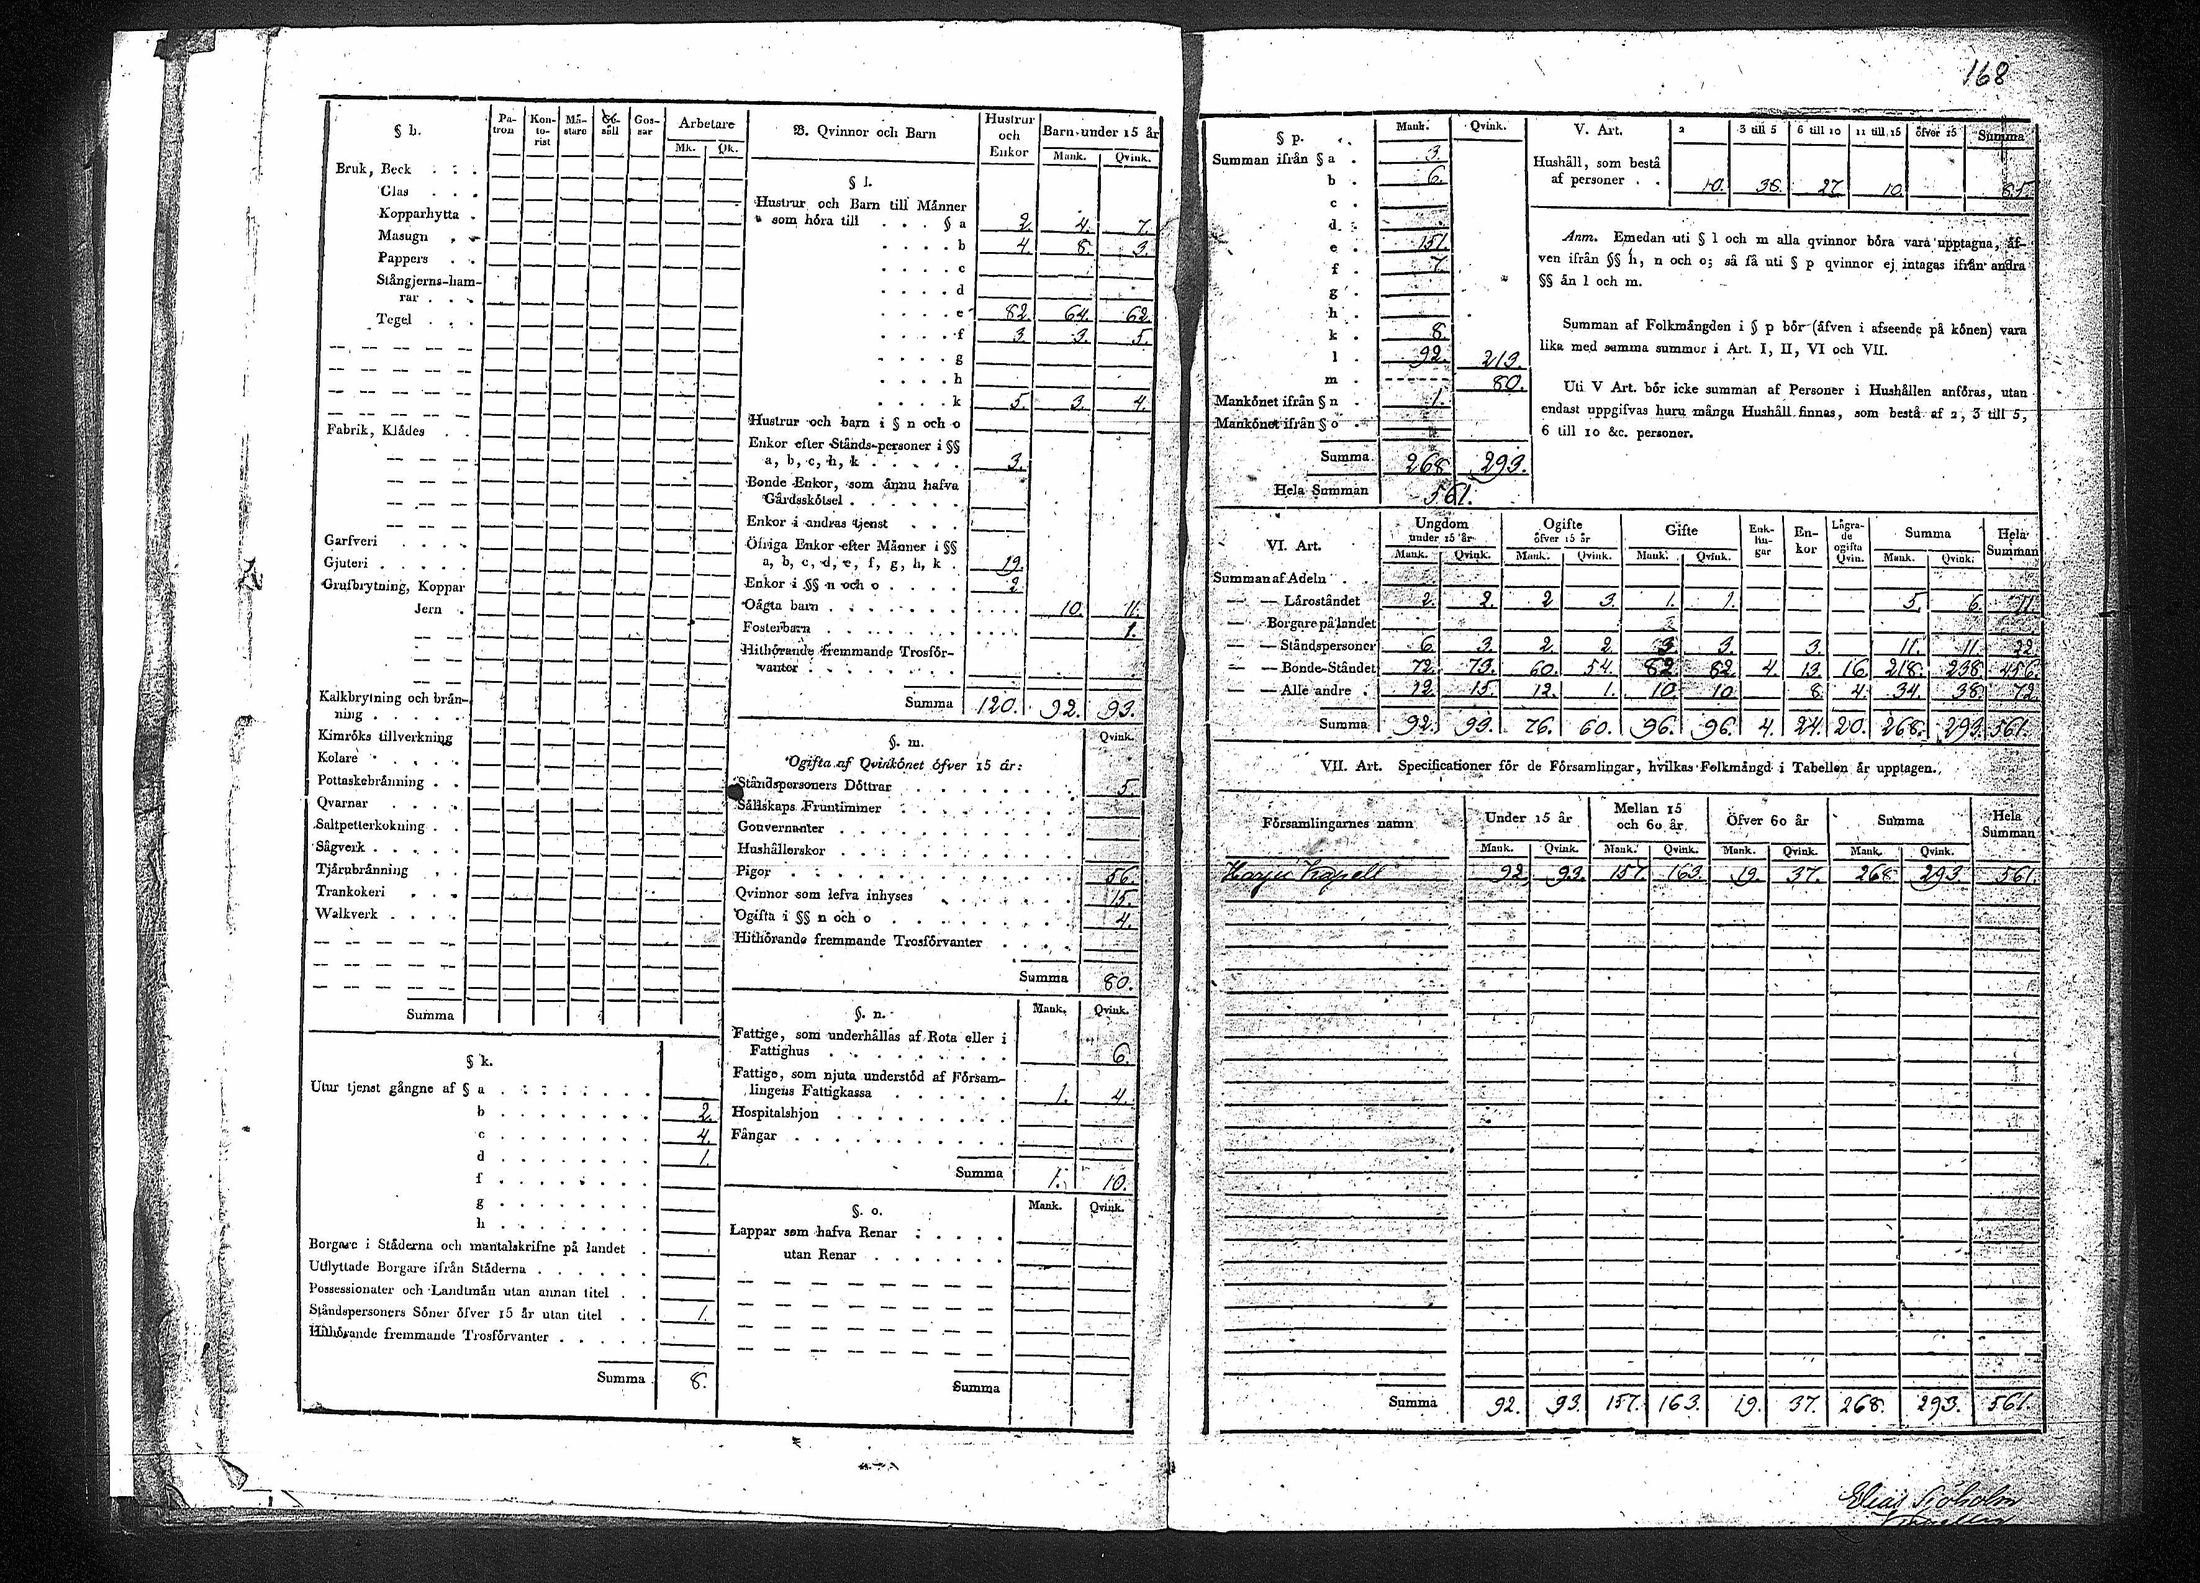 168
§ b. Patron Kontorist Mästare Gesäll Gossar Arbetare
Mk. Qk.
Bruk, Beck . . .
Glas . . .
Kopparhytta .
Masugn . .
Pappers . .
Stångjerns-ham-
rar . . .
Tegel . . .
Fabrik, Klädes . .
Garfveri . . . .
Gjuteri . . . . .
Grufbrytning, Koppar
Jern .
Kalkbrytning och brän-
ning . . . . .
Kimröks tillverkning
Kolare . . . . .
Pottaskebränning . .
Qvarnar . . . .
Saltpetterkokning . .
Sågverk . . . . .
Tjärubränning . .
Trankokeri . . .
Walkverk . . . .
Summa
§ k.
Utur tjenst gångne af § a . . . . . . .
b . . . . . . . . 2.
c . . . . . . . . 4.
d . . . . . . . . 1.
f . . . . . . . .
g . . . . . . . .
h . . . . . . . .
Borgare i Städerna och mantalskrifne på landet .
Utflyttade Borgare ifrån Städerna . . . . . .
Possessionater och Landtmän utan annan titel . .
Ståndspersoners Söner öfver 15 år utan titel . . 1.
Hithörande fremmande Trosförvanter . . . . .
Summa 8.
B. Qvinnor och Barn Hustrur och Enkor Barn under 15 år
Mank. Qvink.
§ l.
Hustrur och Barn till Männer
som höra till . . . § a 2. 4. 7.
. . . . b 4. 8. 3.
. . . . c
. . . . d
. . . . e 82. 64. 62.
. . . . f 3. 3. 5.
. . . . g
. . . . h
. . . . k 5. 3. 4.
Hustrur och barn i § n och o
Enkor efter Stånds-personer i §§
a, b, c, h, k . . . . . 3.
Bonde Enkor, som ännu hafva
Gårdsskötsel . . . . . .
Enkor i andras tjenst . . .
Öfriga Enkor efter Männer i §§
a, b, c, d, e, f, g, h, k . 19.
Enkor i §§ n och o . . . . 2.
Oägta barn . . . . . . . 10. 11.
Fosterbarn . . . . . . . 1.
Hithörande fremmande Trosför-
vanter . . . . . . .
Summa 120. 92. 93.
§. m. Qvink.
Ogifta af Qvinkönet öfver 15 år:
Ståndspersoners Döttrar . . . . . . . . 5.
Sällskaps Fruntimmer . . . . . . . .
Gouvernanter . . . . . . . . . . .
Hushållerskor . . . . . . . . . . .
Pigor . . . . . . . . . . . . . 56.
Qvinnor som lefva inhyses . . . . . . 15.
Ogifta i §§ n och o . . . . . . . . 4.
Hithörande fremmande Trosförvanter . . . .
Summa 80.
§. n. Mank. Qvink.
Fattige, som underhållas af Rota eller i
Fattighus . . . . . . . . . 6.
Fattige, som njuta understöd af Försam-
lingens Fattigkassa . . . . . . 1. 4.
Hospitalshjon . . . . . . . . .
Fångar . . . . . . . . . . .
Summa 1. 10.
§. o. Mank. Qvink.
Lappar som hafva Renar . . . . .
utan Renar . . . . . .
Summa
§ p. Mank. Qvink.
Summan ifrån § a . 3.
b . 6.
c .
d .
e . 151.
f . 7.
g .
h .
k . 8.
l . 92. 213.
m . 80.
Mankönet ifrån § n . 1.
Mankönet ifrån § o .
Summa 268. 293.
Hela Summan 561.
V. Art. 2 3 till 5 6 till 10 11 till 15 öfver 15 Summa
Hushåll, som bestå
af personer . . 10. 38. 27. 10. 85.
Anm. Emedan uti § l och m alla qvinnor böra vara upptagna, äf-
ven ifrån §§ h, n och o; så få uti § p qvinnor ej intagas ifrån andra
§§ än l och m.
Summan af Folkmängden i § p bör (äfven i afseende på könen) vara
lika med samma summor i Art. I, II, VI och VII.
Uti V Art. bör icke summan af Personer i Hushållen anföras, utan
endast uppgifvas huru många Hushåll finnas, som bestå af 2, 3 till 5,
6 till 10 &c. personer.
VI. Art. Ungdom under 15 år Ogifte öfver 15 år Gifte Enklingar Enkor Lägrade ogifta Qvin. Summa Hela Summan
Mank. Qvink. Mank. Qvink. Mank. Qvink. Mank. Qvink.
Summan af Adeln . .
— — Läroståndet 2. 2. 2 3. 1. 1. 5. 6. 11.
— Borgare på landet
— — Ståndspersoner 6. 3. 2. 2. 3. 3. 3. 11. 11. 22.
— — Bonde-Ståndet 72. 73. 60. 54. 82 82. 4. 13. 16. 218. 238. 456.
— — Alle andre . 12. 15. 12. 1. 10. 10. 8. 4. 34. 38. 72.
Summa 92. 93. 76. 60. 96. 96. 4. 24. 20. 268. 293. 561.
VII. Art. Specificationer för de Församlingar, hvilkas Folkmängd i Tabellen är upptagen.
Församlingarnes namn Under 15 år Mellan 15 och 60 år Öfver 60 år Summa Hela Summan
Mank. Qvink. Mank. Qvink. Mank. Qvink. Mank. Qvink.
Harju Kapell 92. 93. 157. 163. 19. 37. 268. 293. 561.
Summa 92. 93. 157. 163. 19. 37. 268. 293. 561.
Elias Sjöholm